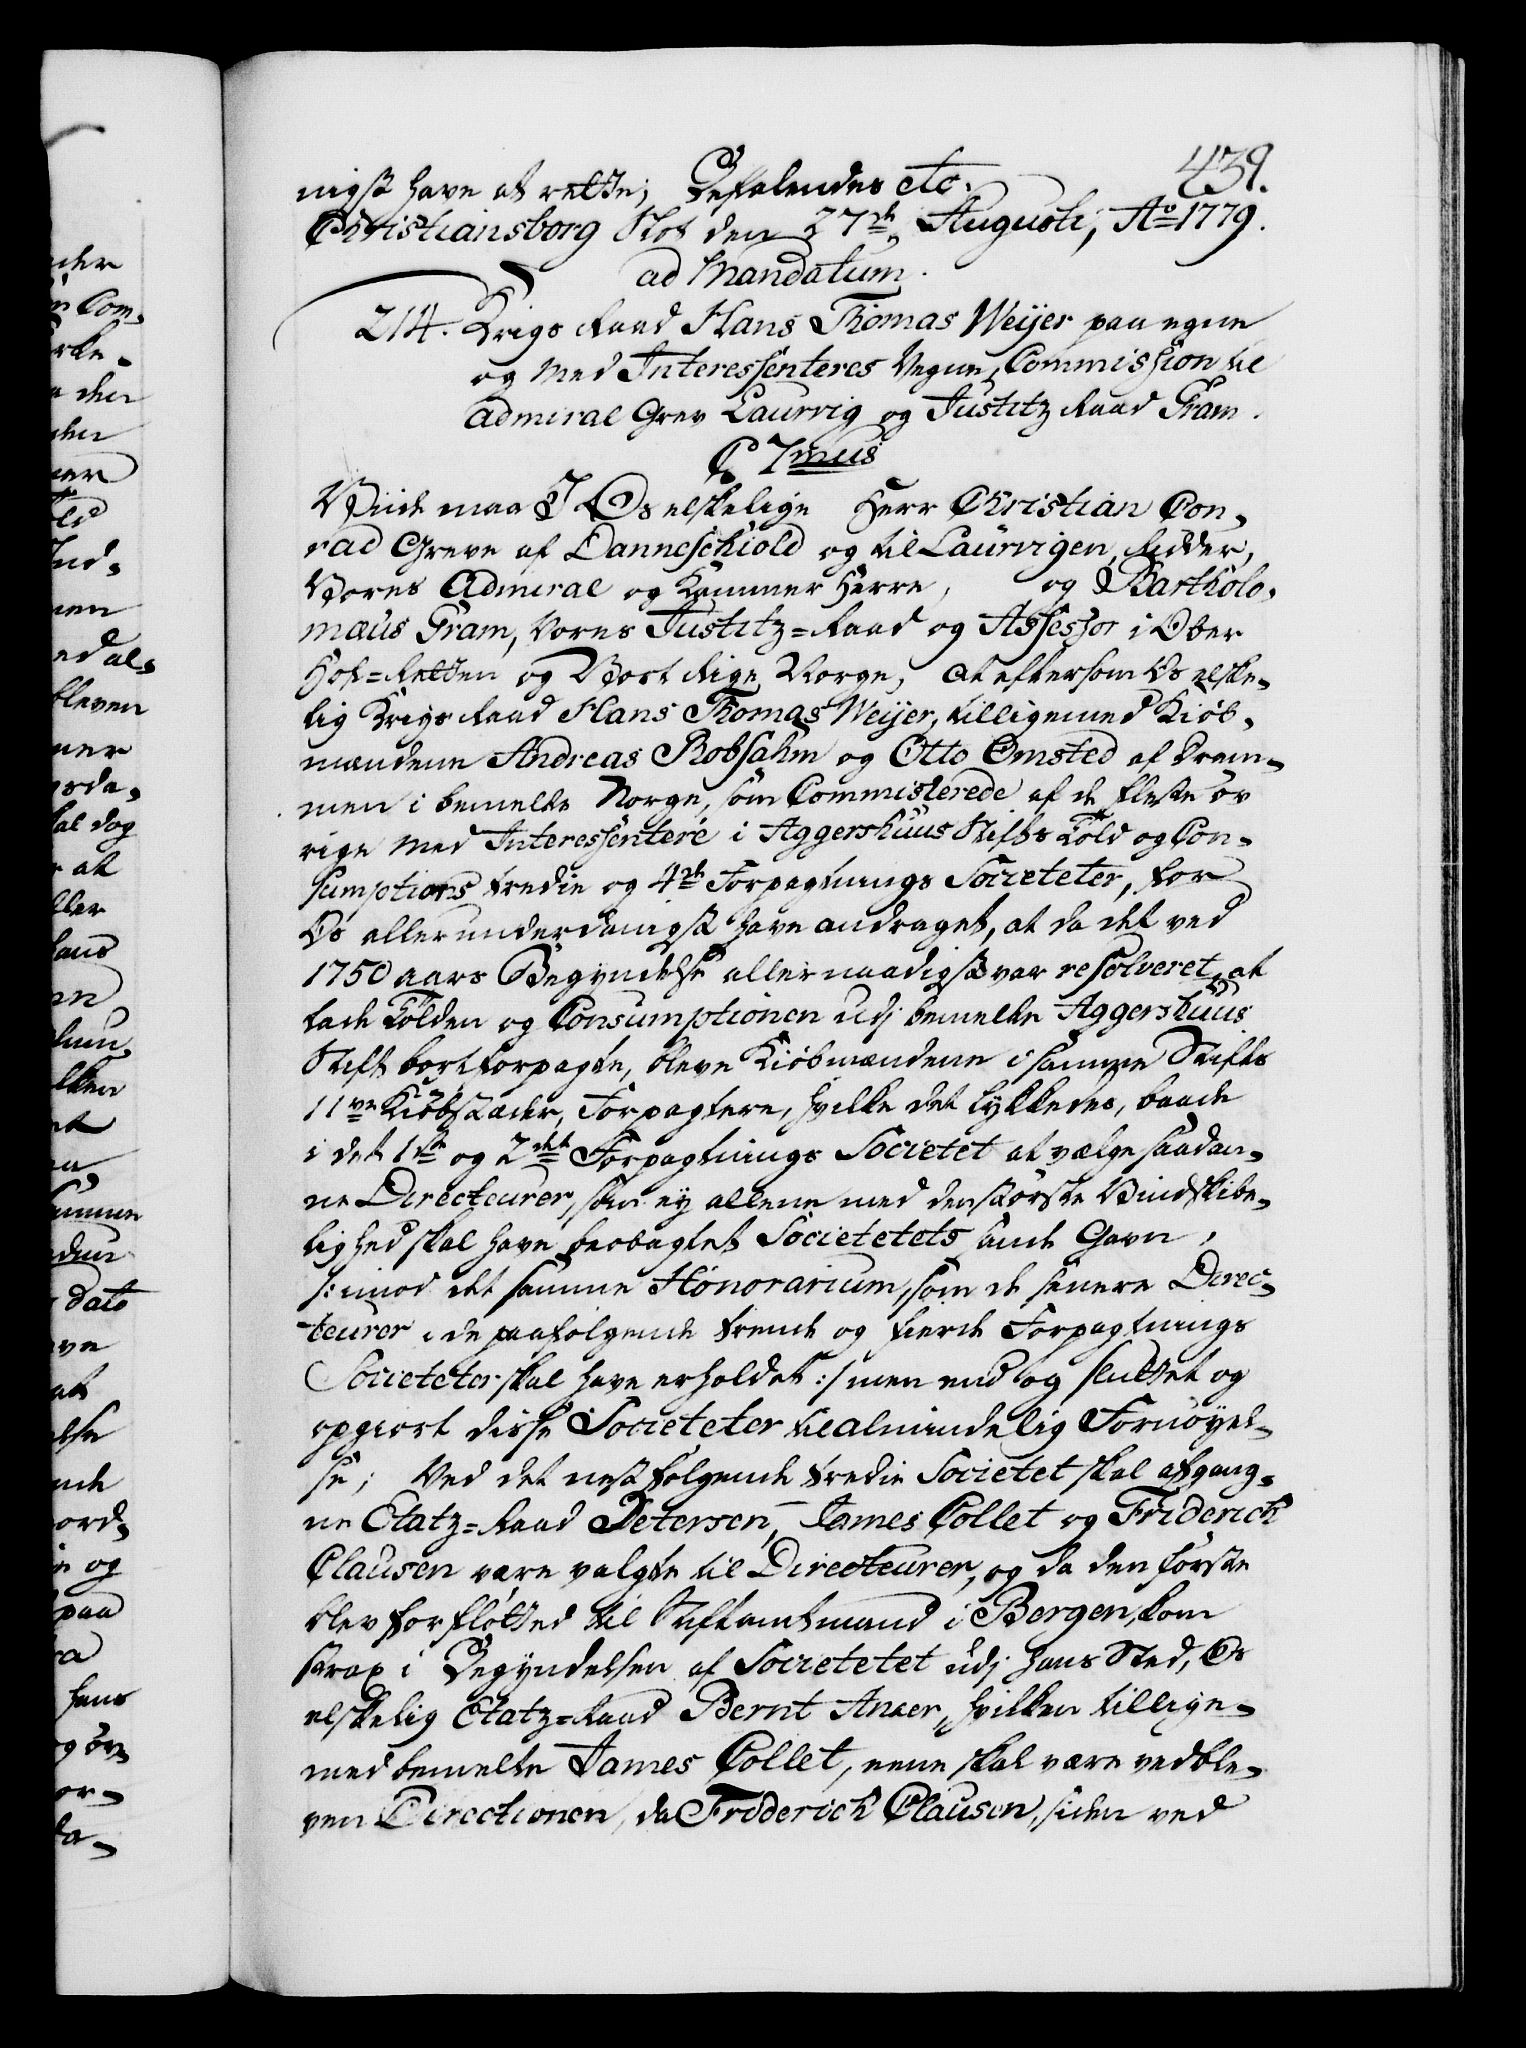 439.
nigst have at rette; Befalendes etc.
Christiansborg Slot den 27de Augusti, Ao 1779.
ad Mandatum.
214. Krigs Raad Hans Thomas Weijer paa egne
og Med Interessenteres Vegne, Commission til
Admiral Grev Laurvig og Justitz Raad Gram.
C 7mus
Viide maa I Os elskelige Herr Christian Con-
rad Greve af Danneschiold og til Laurvigen, Ridder,
Vores Admiral og Kammer Herre, og Bartholo-
mæus Gram, Vores Justitz-Raad og Assessor i Over
Hof-Retten og Vort Rige Norge, At eftersom Os elske-
lig Krigs Raad Hans Thomas Weijer, tilligemed Kiøb-
mændene Andreas Robsahm og Otto Omsted af Dram-
men i bemelte Norge, som Committerede af de fleste øv
rige Med Interessentere i Aggershuus Stifts Told og Con-
sumptions tredie og 4de Forpagtnings Societeter, for
Os allerunderdanigst have andraget, at da det ved
1750 aars Begyndelse allernaadigst var resolveret, at
lade Tolden og Consumptionen udj bemelte Aggershuus
Stift bortforpagte, bleve Kiøbmændene i samme Stifts
11ve Kiøbstæder, Forpagtere, hvilke det lykkedes, baade
i det 1ste og 2det Forpagtnings Societet at vælge saadan-
ne Directeurer, som ey allene med den største Vindskibe-
lighed skal have beobagtet Societetets sande Gavn,
/: imod det samme Honorarium, som de senere Direc-
teurer i de paafølgende trende og fierde Forpagtnings
Societeter skal have erholdet :/ men end og sluttet og
opgiort disse Societeter til almindelig Fornøyel-
se; Ved det nestfølgende tredie Societet skal afgang-
ne Etatz-Raad Petersen, James Collet og Friderich
Clausen være valgte til Directeurer, og da den første
blev forfløtted til Stiftamtmand i Bergen, kom
strax i Begyndelsen af Societetet udj hans Sted, Os
elskelig Etatz-Raad Bernt Ancer, hvilken tillige-
med bemelte James Collet, eene skal være vedble-
ven Directionen, da Friderich Clausen, siden ved